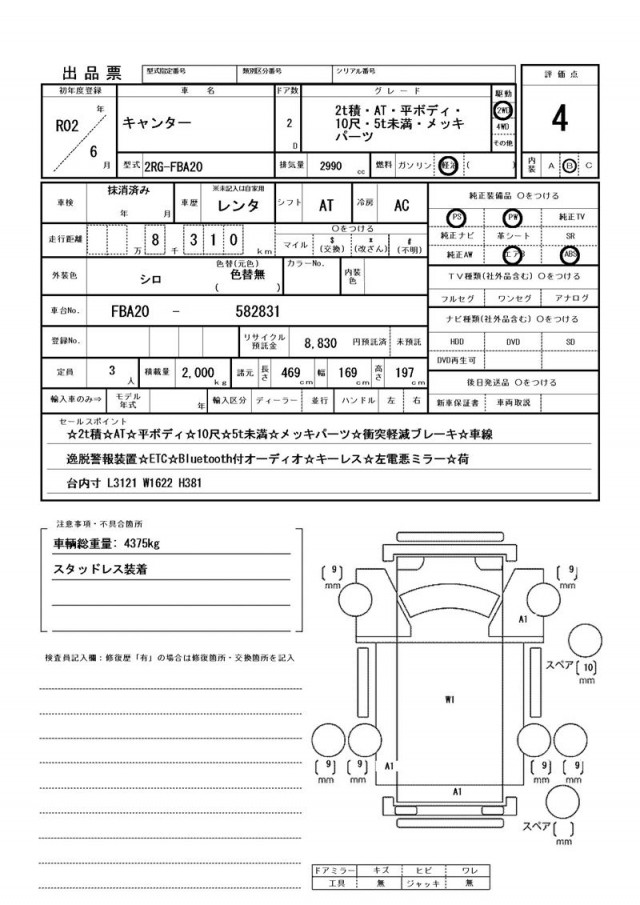 出品票 型式指定番号 類別区分番号 シリアル番号
評価点
4
初年度登録 車名 ドア数 グレード 駆動
R02 年 6 月
キャンター
2 D
2t積・AT・平ボディ・
10尺・5t未満・メッキ
パーツ
2WD
4WD
その他
型式 2RG-FBA20 排気量 2990 cc 燃料 ガソリン 軽油 ( )
内装 A B C
車検 抹消済み 年 月 車歴 ※未記入は自家用 レンタ シフト AT 冷房 AC
走行距離 万 8 千 3 1 0 km
○をつける
マイル $(交換) *(改ざん) #(不明)
外装色 シロ 色替(元色) 色替無 ( ) カラーNo. 内装色
車台No. FBA20 - 582831
登録No. リサイクル預託金 8,830 円預託済 未預託
定員 3 人 積載量 2,000 kg 諸元 長さ 469 cm 幅 169 cm 高さ 197 cm
輸入車のみ⇒ モデル年式 年 輸入区分 ディーラー 並行 ハンドル 左 右
純正装備品 ○をつける
PS PW 純正TV
純正ナビ 革シート SR
純正AW エアB ABS
TV種類(社外品含む) ○をつける
フルセグ ワンセグ アナログ
ナビ種類(社外品含む) ○をつける
HDD DVD SD
DVD再生可
後日発送品 ○をつける
新車保証書 車両取説
セールスポイント
☆2t積☆AT☆平ボディ☆10尺☆5t未満☆メッキパーツ☆衝突軽減ブレーキ☆車線
逸脱警報装置☆ETC☆Bluetooth付オーディオ☆キーレス☆左電悪ミラー☆荷
台内寸 L3121 W1622 H381
注意事項・不具合箇所
車輌総重量: 4375kg
スタッドレス装着
検査員記入欄：修復歴「有」の場合は修復箇所・交換箇所を記入
(9) mm
(9) mm
A1
スペア (10) mm
W1
(9) mm
(9) mm
A1
A1
(9) mm
(9) mm
スペア ( ) mm
ドアミラー キズ ヒビ ワレ
工具 無 ジャッキ 無